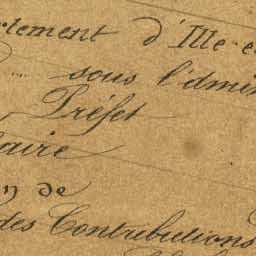 rtement d'Ille e
sous l'admin
Préfet
aire
n de
des Contributions